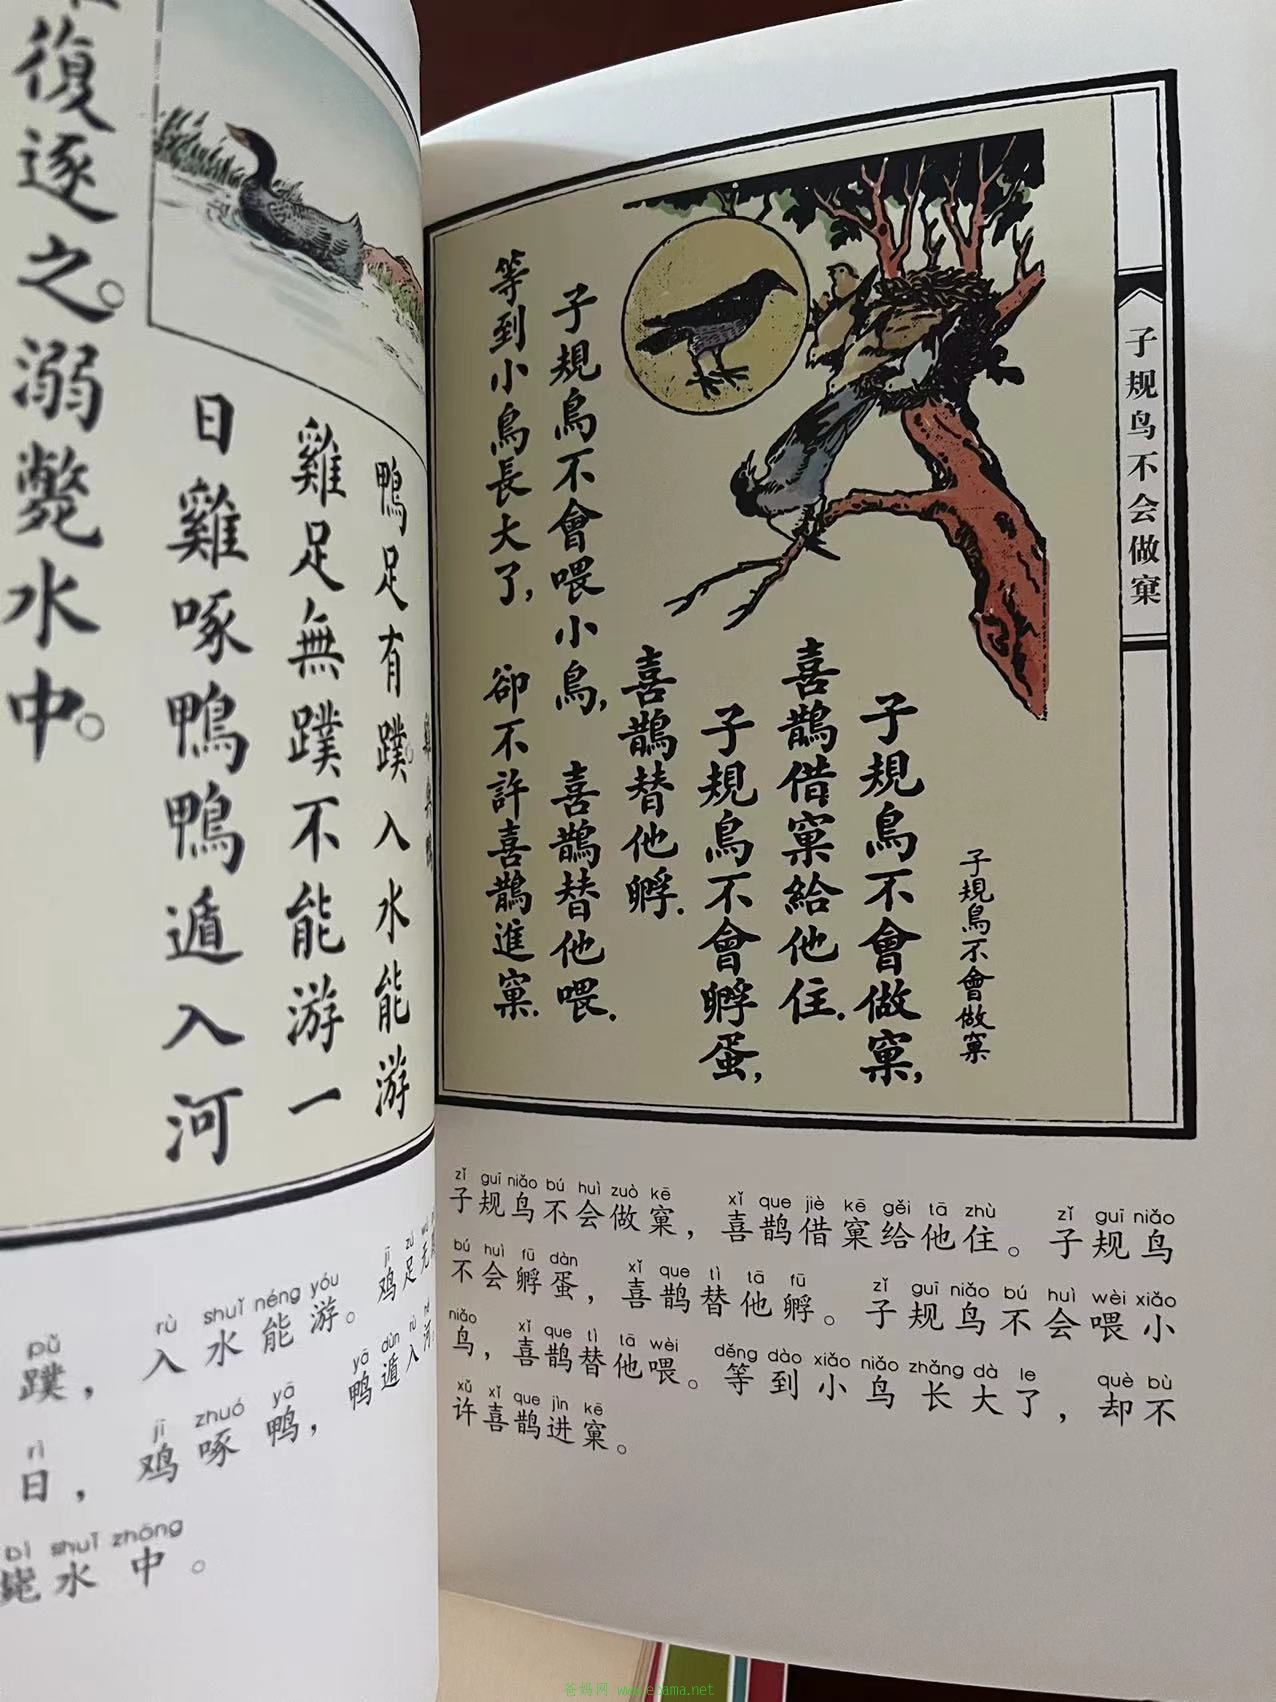 子规鸟不会做窠
子規鳥不會做窠
子規鳥不會做窠,
喜鵲借窠給他住.
子規鳥不會孵蛋,
喜鵲替他孵.
子規鳥不會喂小鳥, 喜鵲替他喂.
等到小鳥長大了, 卻不許喜鵲進窠.
zǐ guī niǎo bú huì zuò kē xǐ que jiè kē gěi tā zhù zǐ guī niǎo
子规鸟不会做窠，喜鹊借窠给他住。子规鸟
bú huì fū dàn xǐ que tì tā fū zǐ guī niǎo bú huì wèi xiǎo
不会孵蛋，喜鹊替他孵。子规鸟不会喂小
niǎo xǐ que tì tā wèi děng dào xiǎo niǎo zhǎng dà le què bù
鸟，喜鹊替他喂。等到小鸟长大了，却不
xǔ xǐ que jìn kē
许喜鹊进窠。
鴨足有蹼。入水能游
雞足無蹼不能游一
日雞啄鴨鴨遁入河
復逐之。溺斃水中。
pǔ rù shuǐ néng yóu jī zú wú
蹼，入水能游。鸡足无
rì jī zhuó yā yā dùn rù hé
日，鸡啄鸭，鸭遁入河
bì shuǐ zhōng
毙水中。
爸妈网 www.epama.net